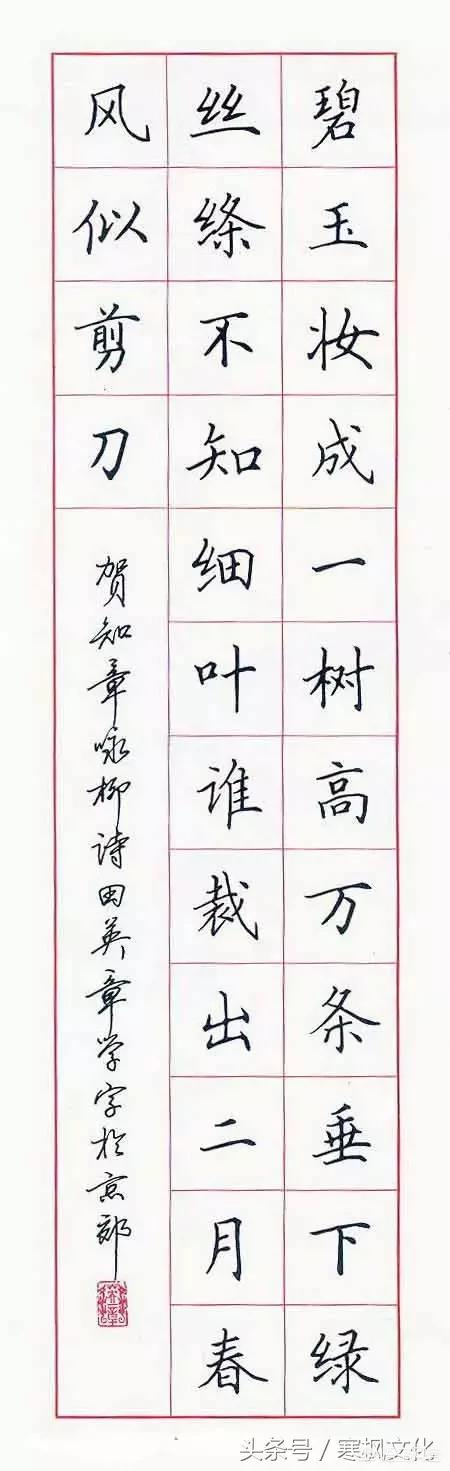 碧玉妆成一树高万条垂下绿
丝绦不知细叶谁裁出二月春
风似剪刀
贺知章咏柳诗田英章学字于京部
头条号/寒枫文化